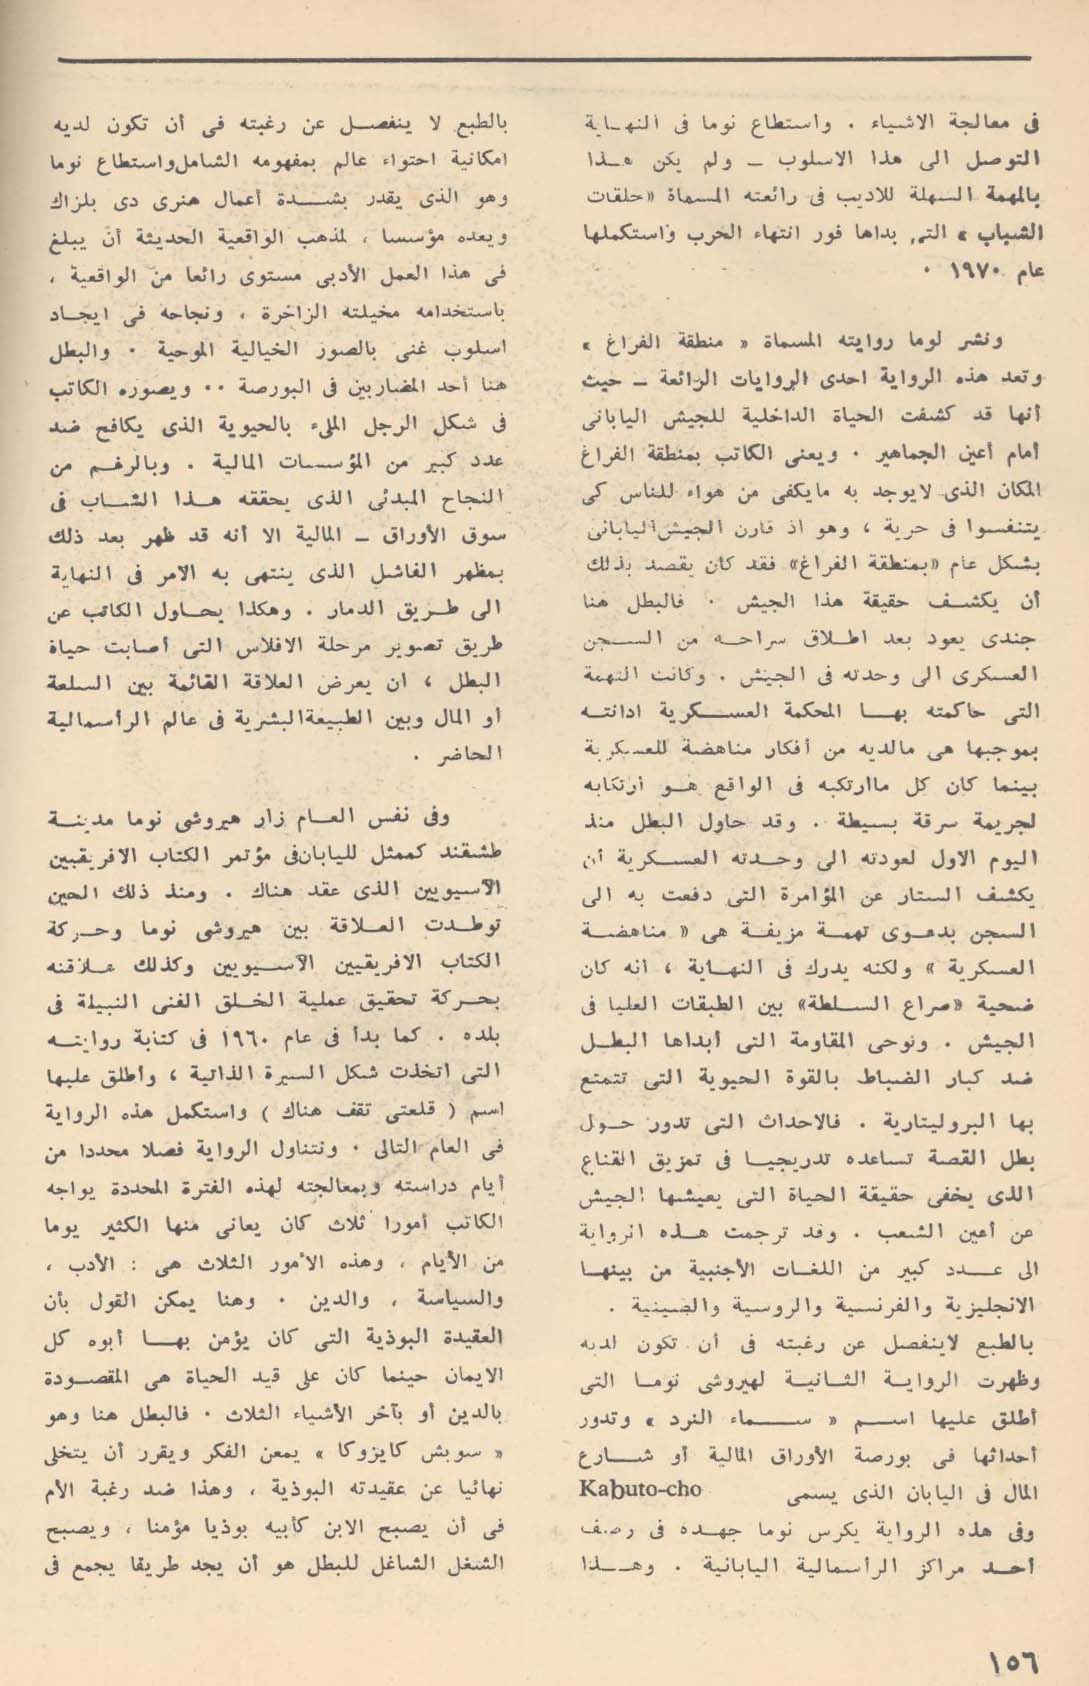 فى معالجة الاشياء . واستطاع نوما فى النهاية
التوصل الى هذا الاسلوب ـ ولم يكن هذا
بالمهمة السهلة للاديب فى رائعته المسماة «حلقات
الشباب » التى بداها فور انتهاء الحرب واستكملها
عام ١٩٧٠ ٠
ونشر لوما روايته المسماة « منطقة الفراغ »
وتعد هذه الرواية احدى الروايات الرائعة ـ حيث
أنها قد كشفت الحياة الداخلية للجيش اليابانى
أمام أعين الجماهير . ويعنى الكاتب بمنطقة الفراغ
المكان الذى لايوجد به مايكفى من هواء للناس كى
يتنفسوا فى حرية ، وهو اذ قارن الجيش اليابانى
بشكل عام «بمنطقة الفراغ» فقد كان يقصد بذلك
أن يكشف حقيقة هذا الجيش . فالبطل هنا
جندى يعود بعد اطلاق سراحه من السجن
العسكرى الى وحدته فى الجيش . وكانت التهمة
التى حاكمته بها المحكمة العسكرية ادانته
بموجبها هى مالديه من أفكار مناهضة للعسكرية
بينما كان كل ماارتكبه فى الواقع هو ارتكابه
لجريمة سرقة بسيطة . وقد حاول البطل منذ
اليوم الاول لعودته الى وحدته العسكرية أن
يكشف الستار عن المؤامرة التى دفعت به الى
السجن بدعوى تهمة مزيفة هى « مناهضة
العسكرية » ولكنه يدرك فى النهاية ، انه كان
ضحية «صراع السلطة» بين الطبقات العليا فى
الجيش . وتوحى المقاومة التى أبداها البطل
ضد كبار الضباط بالقوة الحيوية التى تتمتع
بها البروليتارية . فالاحداث التى تدور حول
بطل القصة تساعده تدريجيا فى تمزيق القناع
الذى يخفى حقيقة الحياة التى يعيشها الجيش
عن أعين الشعب . وقد ترجمت هذه الرواية
الى عدد كبير من اللغات الأجنبية من بينها
الانجليزية والفرنسية والروسية والصينية .
بالطبع لاينفصل عن رغبته فى أن تكون لديه
وظهرت الرواية الثانية لهيروشى نوما التى
أطلق عليها اسم « سماء النرد » وتدور
أحداثها فى بورصة الأوراق المالية أو شارع
المال فى اليابان الذى يسمى Kabuto-cho
وفى هذه الرواية يكرس نوما جهده فى وصف
أحد مراكز الرأسمالية اليابانية . وهذا
بالطبع لا ينفصل عن رغبته فى أن تكون لديه
امكانية احتواء عالم بمفهومه الشامل واستطاع نوما
وهو الذى يقدر بشدة أعمال هنرى دى بلزاك
ويعده مؤسسا ، لمذهب الواقعية الحديثة أن يبلغ
فى هذا العمل الأدبى مستوى رائعا من الواقعية ،
باستخدامه مخيلته الزاخرة ، ونجاحه فى ايجاد
اسلوب غنى بالصور الخيالية الموحية . والبطل
هنا أحد المضاربين فى البورصة .. ويصوره الكاتب
فى شكل الرجل الملىء بالحيوية الذى يكافح ضد
عدد كبير من المؤسسات المالية . وبالرغم من
النجاح المبدئى الذى يحققه هذا الشاب فى
سوق الأوراق ـ المالية الا أنه قد ظهر بعد ذلك
بمظهر الفاشل الذى ينتهى به الامر فى النهاية
الى طريق الدمار . وهكذا يحاول الكاتب عن
طريق تصوير مرحلة الافلاس التى أصابت حياة
البطل ، ان يعرض العلاقة القائمة بين السلعة
أو المال وبين الطبيعة البشرية فى عالم الرأسمالية
الحاضر .
وفى نفس العام زار هيروشى نوما مدينة
طشقند كممثل لليابان فى مؤتمر الكتاب الافريقيين
الآسيويين الذى عقد هناك . ومنذ ذلك الحين
توطدت العلاقة بين هيروشى نوما وحركة
الكتاب الافريقيين الآسيويين وكذلك علاقته
بحركة تحقيق عملية الخلق الفنى النبيلة فى
بلده . كما بدأ فى عام ١٩٦٠ فى كتابة روايته
التى اتخذت شكل السيرة الذاتية ، وأطلق عليها
اسم ( قلعتى تقف هناك ) واستكمل هذه الرواية
فى العام التالى . وتتناول الرواية فصلا محددا من
أيام دراسته وبمعالجته لهذه الفترة المحددة يواجه
الكاتب أمورا ثلاث كان يعانى منها الكثير يوما
من الأيام ، وهذه الأمور الثلاث هى : الأدب ،
والسياسة ، والدين . وهنا يمكن القول بأن
العقيدة البوذية التى كان يؤمن بها أبوه كل
الايمان حينما كان على قيد الحياة هى المقصودة
بالدين أو بآخر الأشياء الثلاث . فالبطل هنا وهو
« سوبش كايزوكا » يمعن الفكر ويقرر أن يتخلى
نهائيا عن عقيدته البوذية ، وهذا ضد رغبة الأم
فى أن يصبح الابن كأبيه بوذيا مؤمنا ، ويصبح
الشغل الشاغل للبطل هو أن يجد طريقا يجمع فى
١٥٦